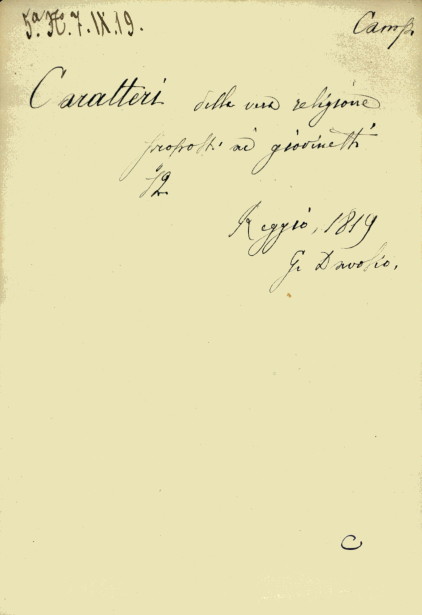 5.ª N.º 7. IX. 19.
Camp.
Caratteri della vera religione
proposti ai giovinetti
12
Reggio, 1819
G. Davolio.
C